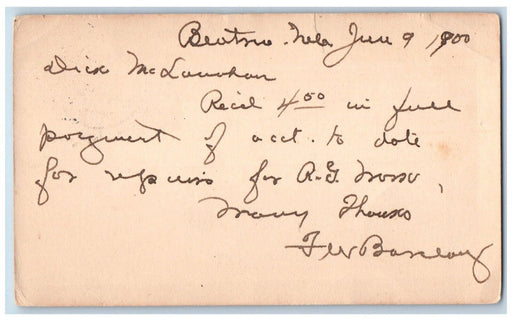 Beatrice Neb June 9 1900
Dick McLanahan
Recd 4 00 in full
payment of acct. to date
for repairs for R.G.
Many Thanks
F W Barclay